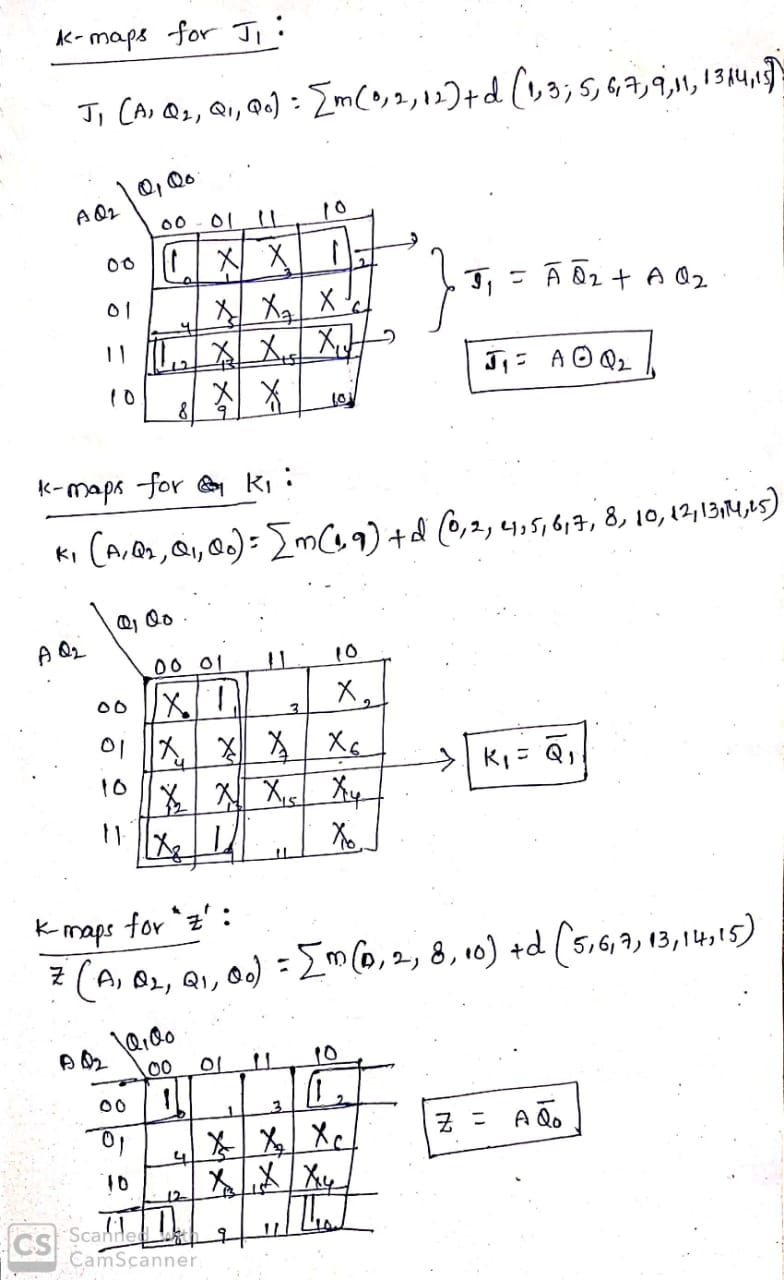 K-maps for J₁ :
J₁ (A, Q₂, Q₁, Q₀) = Σm(0,2,12)+d (1,3,5,6,7,9,11,13,14,15)
Q₁ Q₀
A Q₂
00 01 11 10
00 1 0 X 1 X 3 1 2
01 4 X 5 X 7 X 6
11 1 12 X 13 X 15 X 14
10 8 X 9 X 11 10
} J₁ = Ā Q̄₂ + A Q₂
J₁ = A ⊙ Q₂
K-maps for K₁ :
K₁ (A, Q₂, Q₁, Q₀) = Σm(1,9) +d (0,2,4,5,6,7,8,10,12,13,14,15)
Q₁ Q₀
A Q₂
00 01 11 10
00 X 0 1 1 3 X 2
01 X 4 X 5 X 7 X 6
10 X 12 X 13 X 15 X 14
11 X 8 1 9 11 X 10
K₁ = Q̄₁
K-maps for "Z" :
Z (A, Q₂, Q₁, Q₀) = Σm(0,2,8,10) +d (5,6,7,13,14,15)
Q₁ Q₀
A Q₂
00 01 11 10
00 1 0 1 3 1 2
01 4 X 5 X 7 X 6
10 12 X 13 15 X X 14
11 1 8 9 11 1 10
Z = A Q̄₀
CS Scanned with
CamScanner